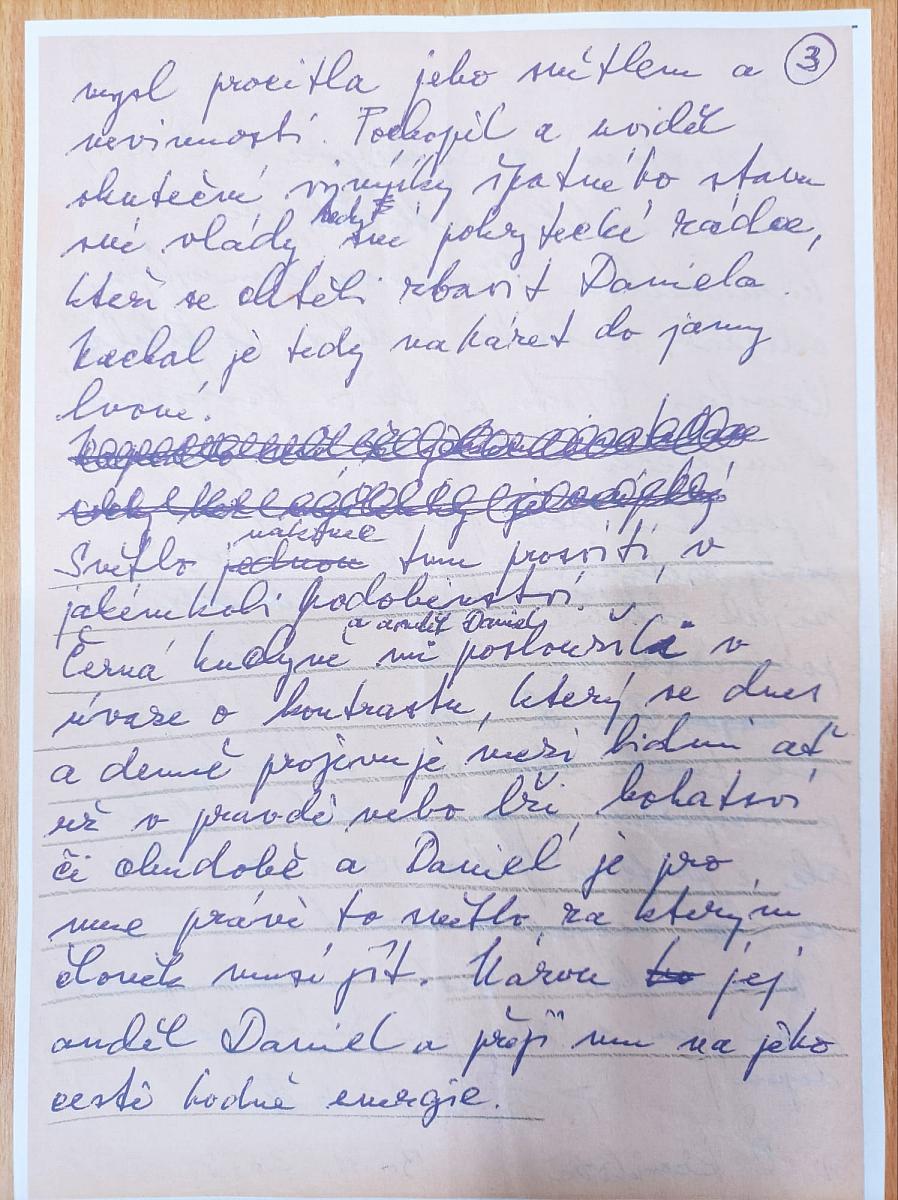 3
mysl procitla jeho světlem a
nevinností. Pochopil a uviděl
skutečné výmysly špatného stavu
své vlády tedy své pokrytecké rádce,
kteří se chtěli zbavit Daniela.
Nechal je tedy nakázet do jámy
lvové.
Světlo jednou nakonec tmu prosvítí, v
jakémkoli podobenství.
Černá kuchyně a anděl Daniel mi posloužila v
úvaze o kontrastu, který se dnes
a denně projevuje mezi lidmi ať
už v pravdě nebo lži, bohatsví
či chudobě a Daniel je pro
mne právě to světlo, za kterým
člověk musí jít. Nazvu to jej
anděl Daniel a přeji mu na jeho
cestě hodně energie.